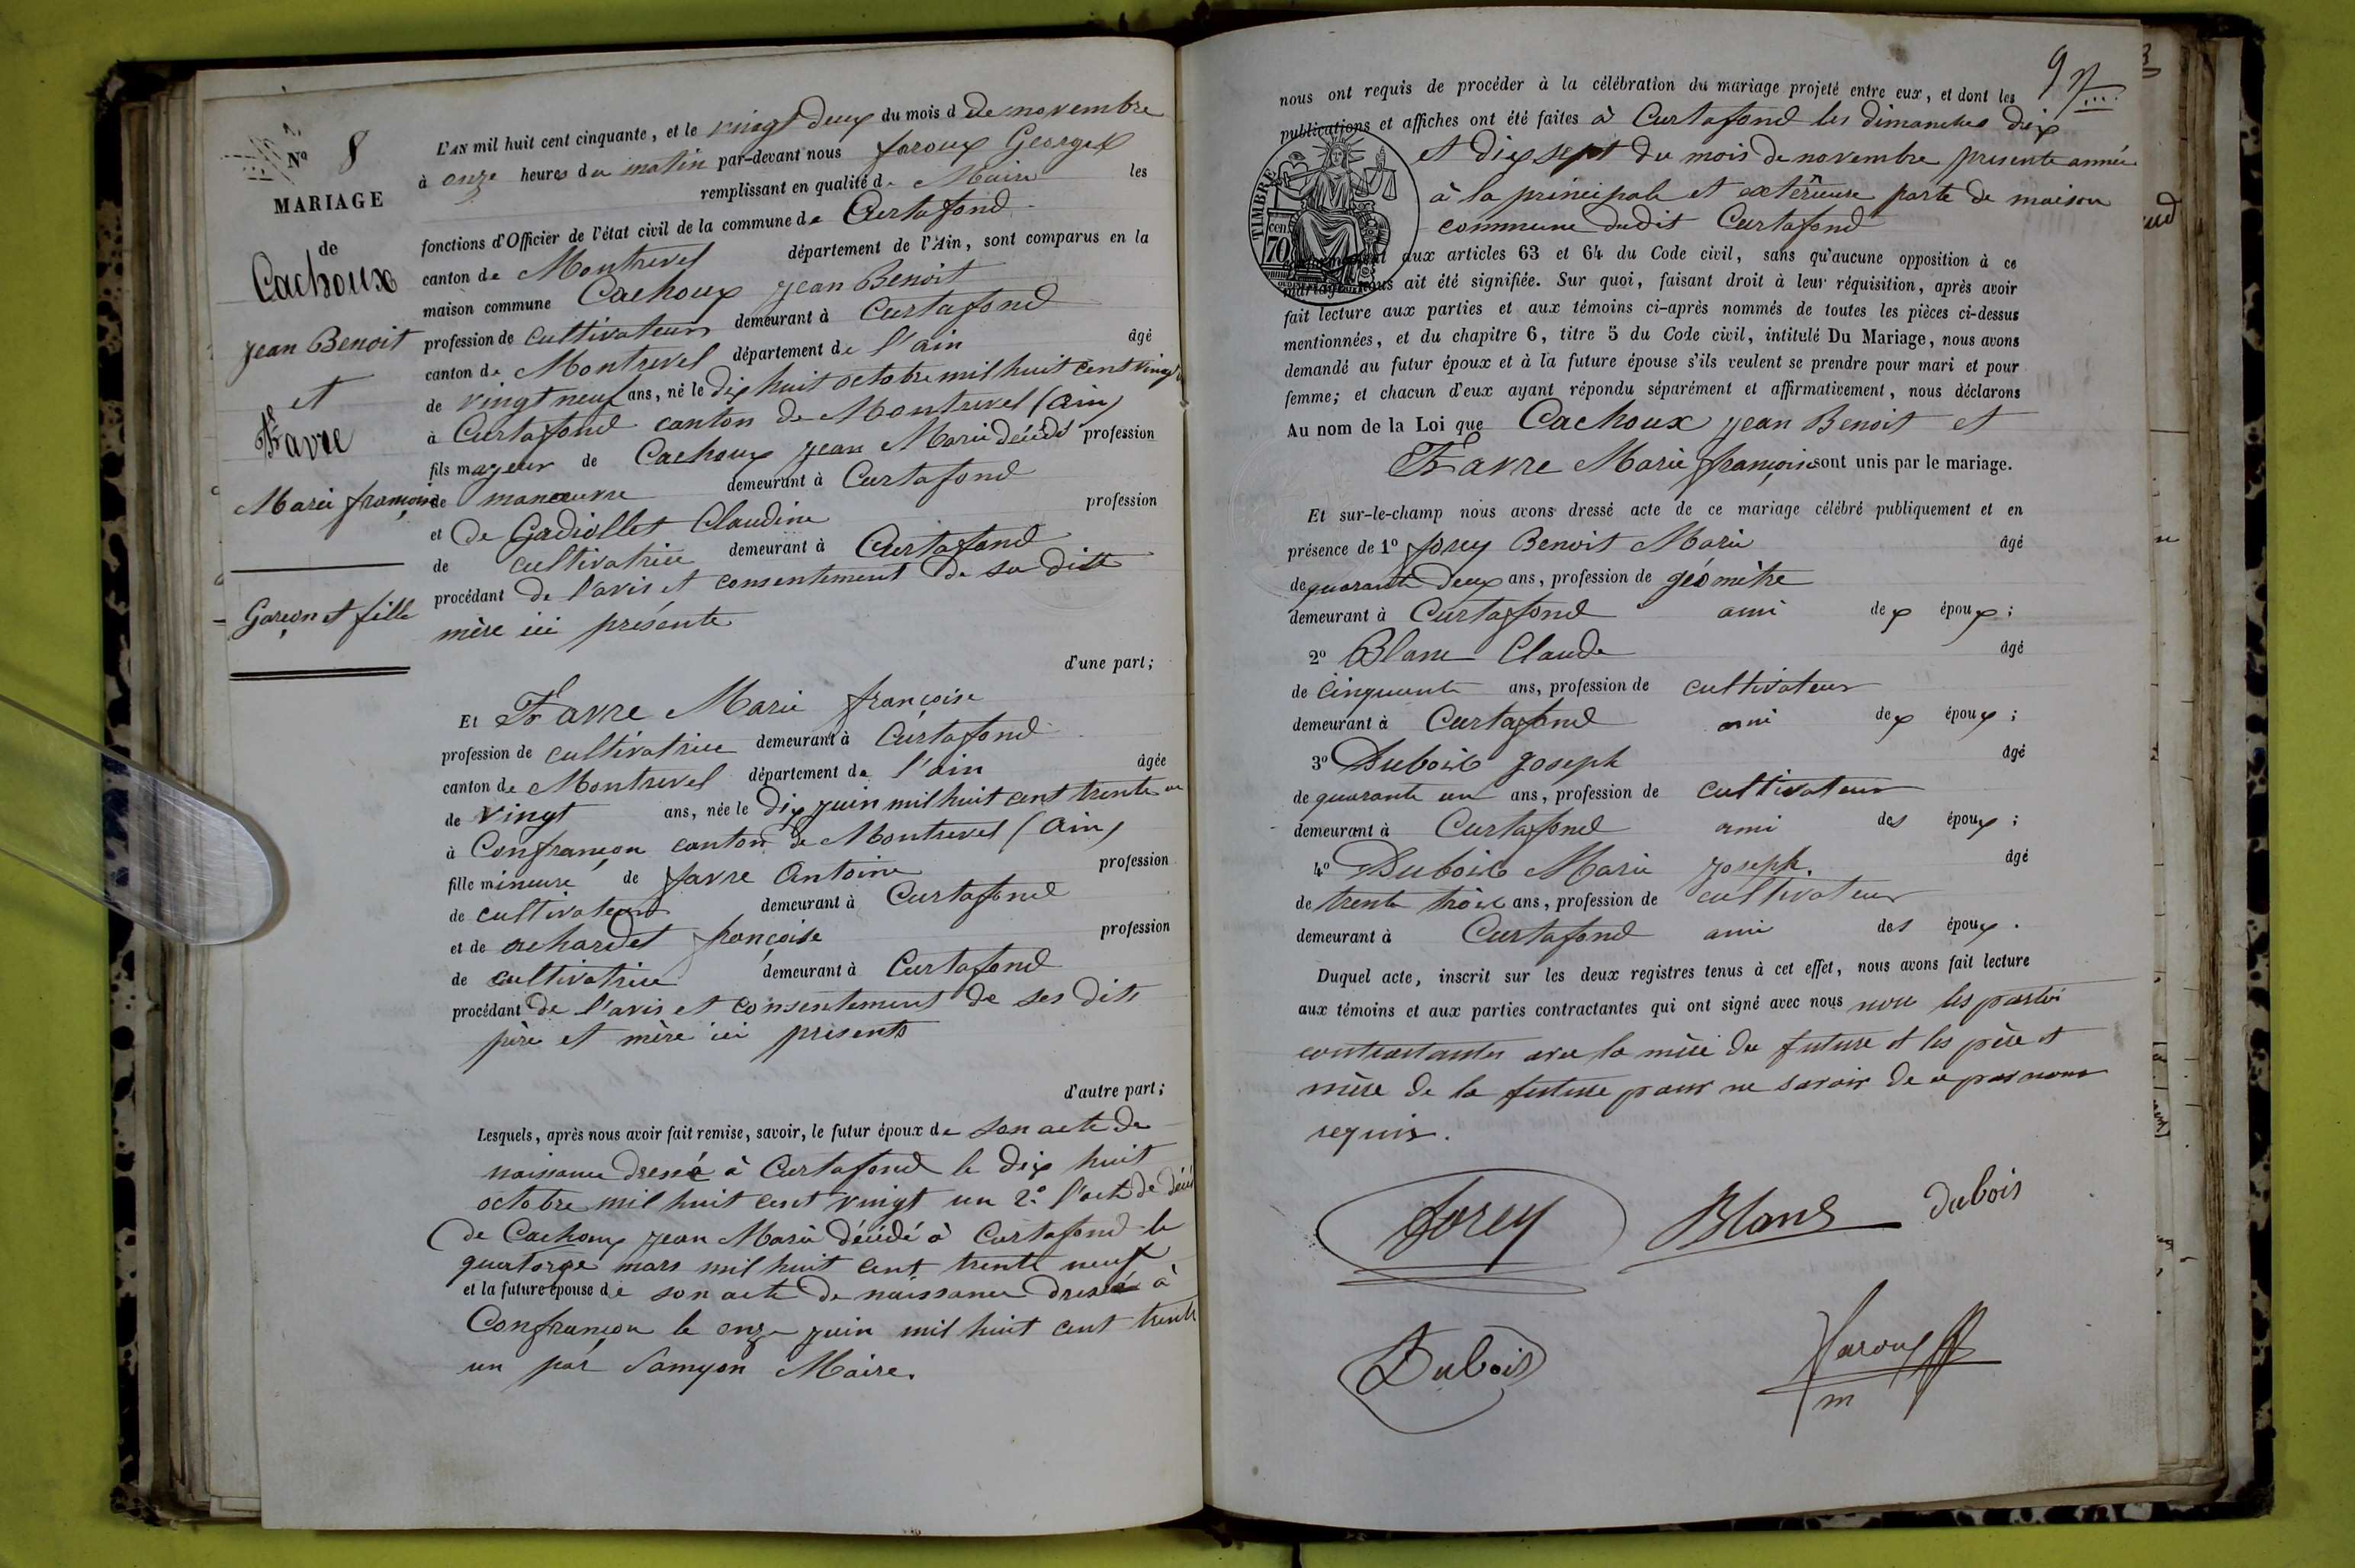 N° 8
MARIAGE
de
Cachoux
Jean Benoit
et
Favre
Marie françoise
Garçon et fille
L'AN mil huit cent cinquante, et le vingt deux du mois d de novembre
à onze heures du matin par-devant nous faroux Georges
remplissant en qualité de Maire les
fonctions d'Officier de l'état civil de la commune de Curtafond
canton de Montrevel département de l'Ain, sont comparus en la
maison commune Cachoux Jean Benoit
profession de cultivateur demeurant à Curtafond
canton de Montrevel département de l'ain âgé
de vingt neuf ans, né le dix huit octobre mil huit cent vingt
à Curtafond canton de Montrevel (ain)
fils majeur de Cachoux Jean Marie décédé profession
de manœuvre demeurant à Curtafond
et de Gadiollet Claudine profession
de cultivatrice demeurant à Curtafond
procédant de l'avis et consentement de sa ditte
mère ici présente
d'une part;
Et Favre Marie françoise
profession de cultivatrice demeurant à Curtafond
canton de Montrevel département de l'ain âgée
de vingt ans, née le dix juin mil huit cent trente un
à Confrançon canton de Montrevel (ain)
fille mineure de favre Antoine profession
de cultivateur demeurant à Curtafond
et de françoise profession
de cultivatrice demeurant à Curtafond
procédant de l'avis et consentement de ses dits
père et mère ici présents
d'autre part;
Lesquels, après nous avoir fait remise, savoir, le futur époux de son acte de
naissance dressé à Curtafond le dix huit
octobre mil huit cent vingt un 2° l'acte de décès
de Cachoux Jean Marie décédé à Curtafond le
quatorze mars mil huit cent trente neuf
et la future épouse de son acte de naissance dressé à
Confrançon le onze juin mil huit cent trente
un par Samyon Maire.
nous ont requis de procéder à la célébration du mariage projeté entre eux, et dont les
publications et affiches ont été faites à Curtafond les dimanches dix
et dix sept du mois de novembre presente année
à la principale et extérieure porte de maison
commune dudit Curtafond
TIMBRE
70 cen
conformément aux articles 63 et 64 du Code civil, sans qu'aucune opposition à ce
mariage nous ait été signifiée. Sur quoi, faisant droit à leur réquisition, après avoir
fait lecture aux parties et aux témoins ci-après nommés de toutes les pièces ci-dessus
mentionnées, et du chapitre 6, titre 5 du Code civil, intitulé Du Mariage, nous avons
demandé au futur époux et à la future épouse s'ils veulent se prendre pour mari et pour
femme; et chacun d'eux ayant répondu séparément et affirmativement, nous déclarons
Au nom de la Loi que Cachoux Jean Benoit et
Favre Marie françoise sont unis par le mariage.
Et sur-le-champ nous avons dressé acte de ce mariage célébré publiquement et en
présence de 1° forey Benoit Marie âgé
de quarante deux ans, profession de géomètre
demeurant à Curtafond ami dex époux;
2° Blanc Claude âgé
de cinquante ans, profession de cultivateur
demeurant à Curtafond ami dex époux;
3° Dubois Joseph âgé
de quarante un ans, profession de cultivateur
demeurant à Curtafond ami des époux;
4° Dubois Marie Joseph. âgé
de trente trois ans, profession de cultivateur
demeurant à Curtafond ami des époux.
Duquel acte, inscrit sur les deux registres tenus à cet effet, nous avons fait lecture
aux témoins et aux parties contractantes qui ont signé avec nous non les parties
contractantes avec la mère du future et les père et
mère de la future pour ne savoir de ce par nous
requis.
forey Blanc dubois
Dubois
faroux
m